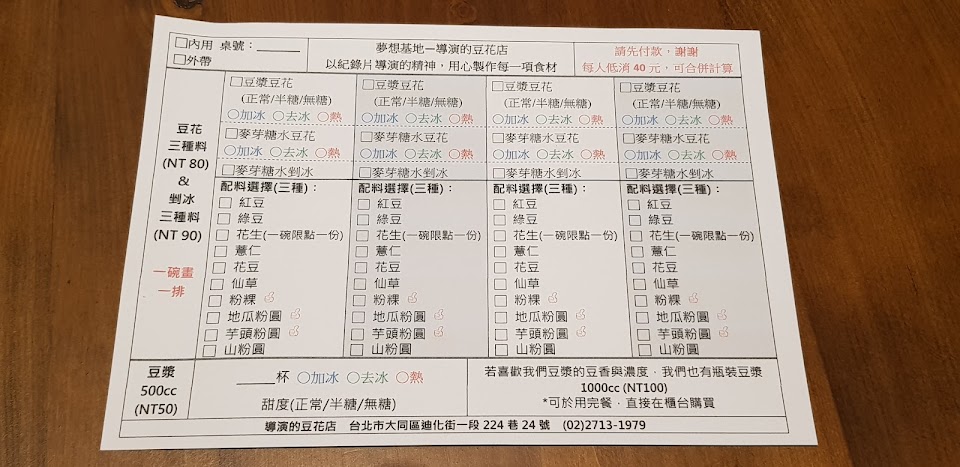 □內用 桌號：______
□外帶
夢想基地－導演的豆花店
以紀錄片導演的精神，用心製作每一項食材
請先付款，謝謝
每人低消 40 元，可合併計算
豆花
三種料
(NT 80)
&
剉冰
三種料
(NT 90)
一碗畫
一排
□豆漿豆花
(正常/半糖/無糖)
○加冰 ○去冰 ○熱
□麥芽糖水豆花
○加冰 ○去冰 ○熱
□麥芽糖水剉冰
配料選擇(三種)：
□ 紅豆
□ 綠豆
□ 花生(一碗限點一份)
□ 薏仁
□ 花豆
□ 仙草
□ 粉粿
□ 地瓜粉圓
□ 芋頭粉圓
□ 山粉圓
□豆漿豆花
(正常/半糖/無糖)
○加冰 ○去冰 ○熱
□麥芽糖水豆花
○加冰 ○去冰 ○熱
□麥芽糖水剉冰
配料選擇(三種)：
□ 紅豆
□ 綠豆
□ 花生(一碗限點一份)
□ 薏仁
□ 花豆
□ 仙草
□ 粉粿
□ 地瓜粉圓
□ 芋頭粉圓
□ 山粉圓
□豆漿豆花
(正常/半糖/無糖)
○加冰 ○去冰 ○熱
□麥芽糖水豆花
○加冰 ○去冰 ○熱
□麥芽糖水剉冰
配料選擇(三種)：
□ 紅豆
□ 綠豆
□ 花生(一碗限點一份)
□ 薏仁
□ 花豆
□ 仙草
□ 粉粿
□ 地瓜粉圓
□ 芋頭粉圓
□ 山粉圓
□豆漿豆花
(正常/半糖/無糖)
○加冰 ○去冰 ○熱
□麥芽糖水豆花
○加冰 ○去冰 ○熱
□麥芽糖水剉冰
配料選擇(三種)：
□ 紅豆
□ 綠豆
□ 花生(一碗限點一份)
□ 薏仁
□ 花豆
□ 仙草
□ 粉粿
□ 地瓜粉圓
□ 芋頭粉圓
□ 山粉圓
豆漿
500cc
(NT50)
_____杯 ○加冰 ○去冰 ○熱
甜度(正常/半糖/無糖)
若喜歡我們豆漿的豆香與濃度，我們也有瓶裝豆漿
1000cc (NT100)
*可於用完餐，直接在櫃台購買
導演的豆花店 台北市大同區迪化街一段 224 巷 24 號 (02)2713-1979